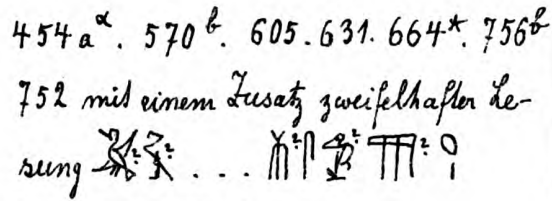 454a^α. 570^b. 605. 631. 664*. 756^b
752 mit einem Zusatz zweifelhafter Le-
sung ? ? . . . ? ?